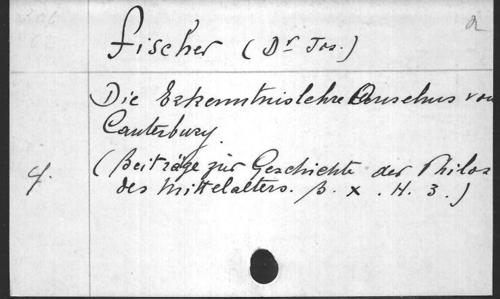 Fischer (Dr Jos.)
Die Erkenntnislehre Anselms von
Canterbury.
(Beiträge zur Geschichte der Philos
des Mittelalters. B. X. H. 3.)